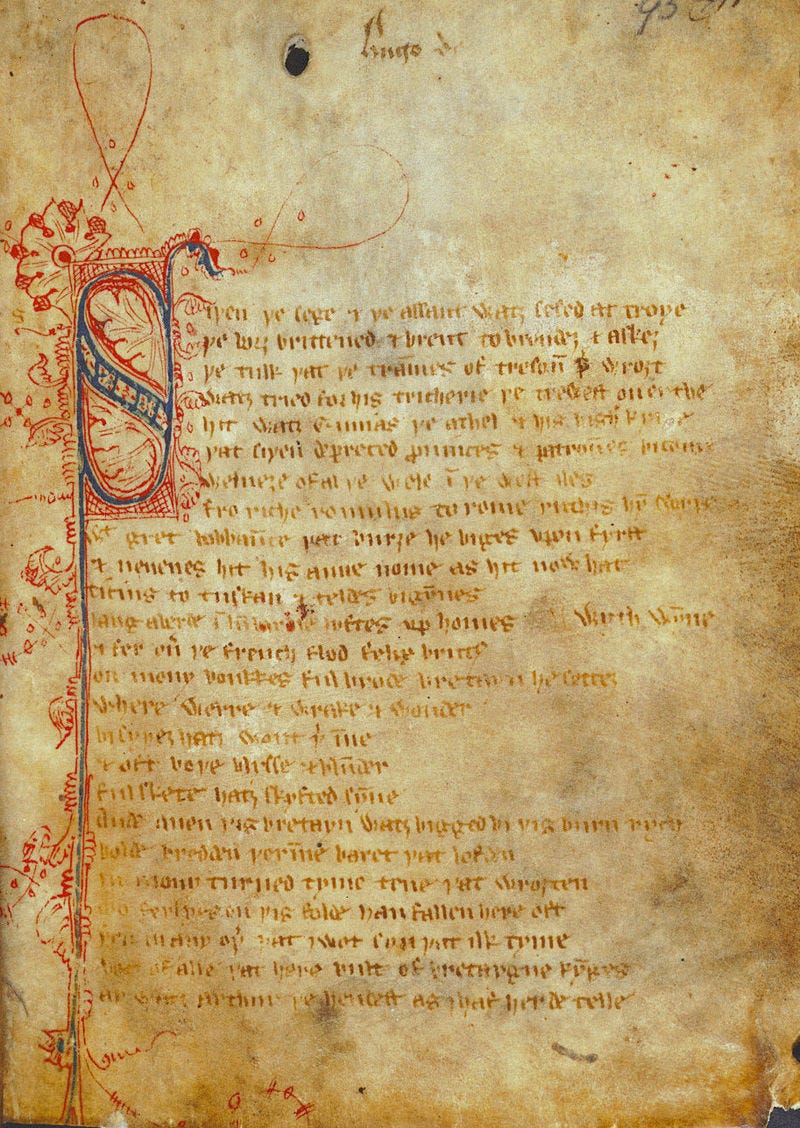 Hugo de
Siþen þe sege & þe assaut watȝ sesed at troye
þe borȝ brittened & brent to brondeȝ & askeȝ
þe tulk þat þe trãmes of tresoũ þ̾ wroȝt
Watȝ tried for his tricherie þe trewest on erthe
hit watȝ Ennias þe athel & his highe kynde
þat siþen depreced prouinces & patroũes bicome
Welneȝe of al þe wele ī þe west iles
fro riche romulus to rome ricchis hȳ swyþe
gret bobbaũce þat burȝe he biges vpon fyrst
& neuenes hit his aune nome as hit now hat
ticius to tuskan & teldes bigȳnes
langaberde ī lumbardie lyftes vp homes wyth wȳne
& fer ou̾ þe french flod felix brutus
on mony bonkkes ful brode bretayn he setteȝ
where werre & wrake & wonder
bi syþeȝ hatȝ wont þ̾īne
& oft boþe blysse & blũder
ful skete hatȝ skyfted sȳne
Ande quen þis bretayn watȝ bigged bi þis burn rych
bolde bredden þerīne baret þat lofden
in mony turned tyme tene þat wroȝten
mo ferlyes on þis folde han fallen here oft
þen in any oþ̾ þat I wot syn þat ilk tyme
bot of alle þat here bult of bretaygne kȳges
ay watȝ arthur þe hendest as I haf herde telle